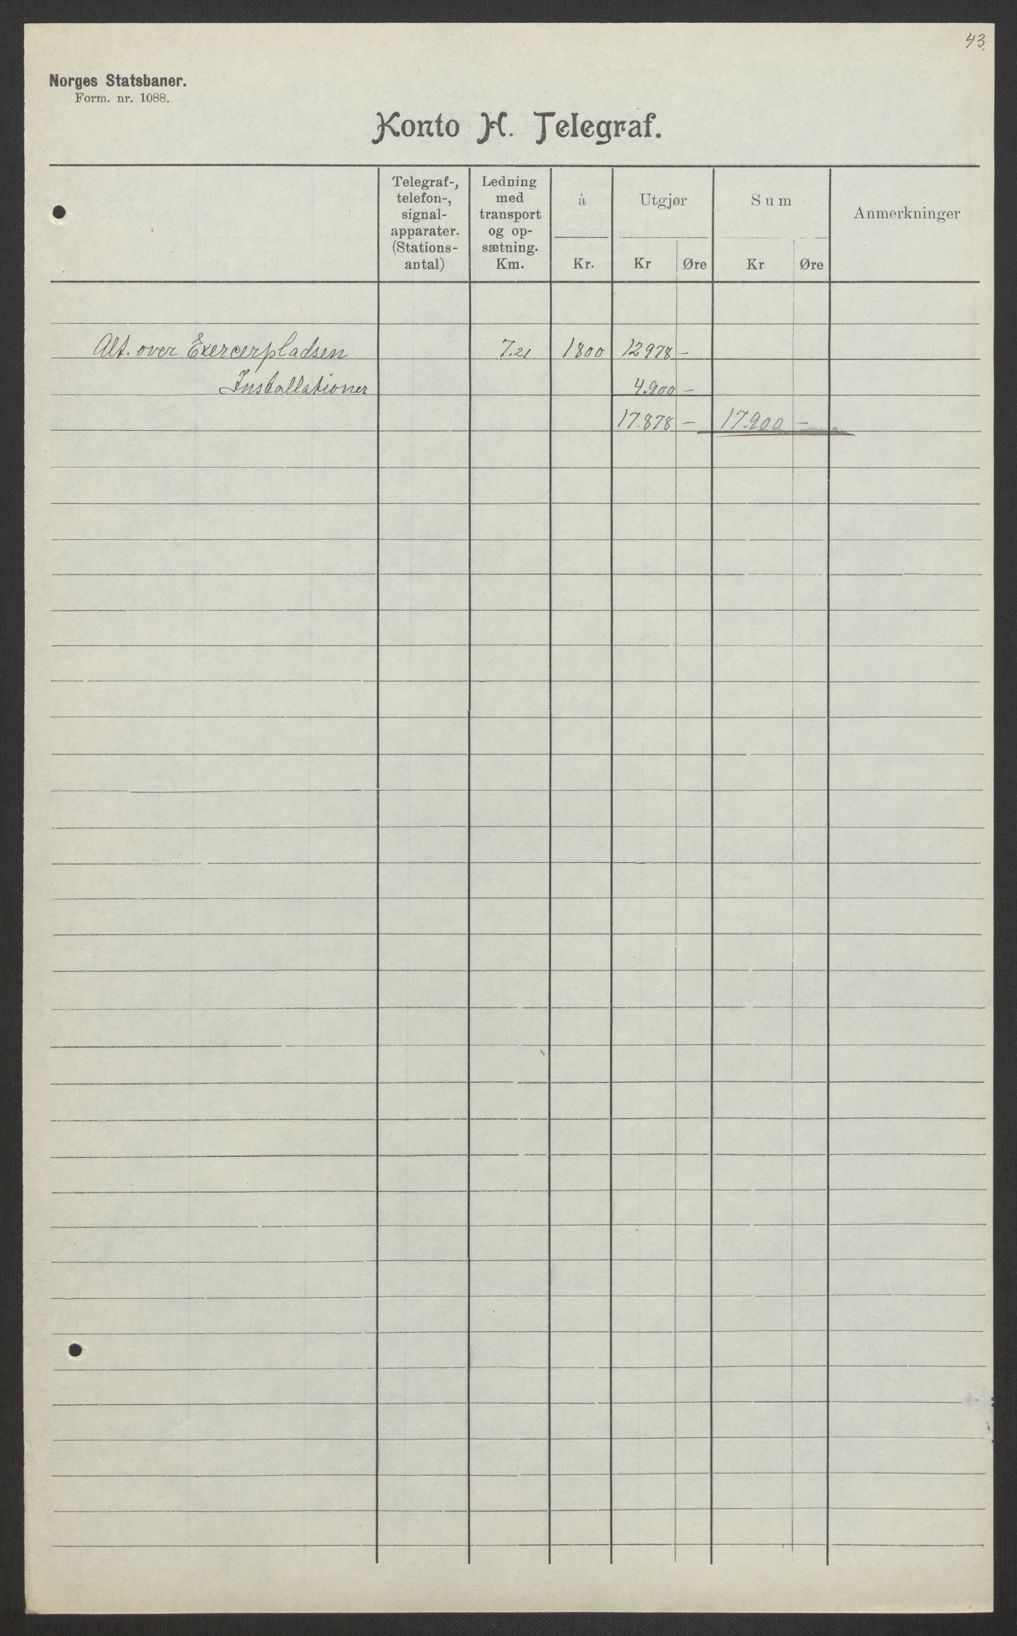 43.
Norges Statsbaner.
Form. nr. 1088.
Konto H. Telegraf.
Telegraf-, telefon-, signal- apparater. (Stations- antal)
Ledning med transport og op- sætning. Km.
à Kr.
Utgjør Kr Øre
Sum Kr Øre
Anmerkninger
Alt. over Exercerpladsen 7.21 1800 12978 -
Installationer 4.900 -
17.878 - 17.900 -